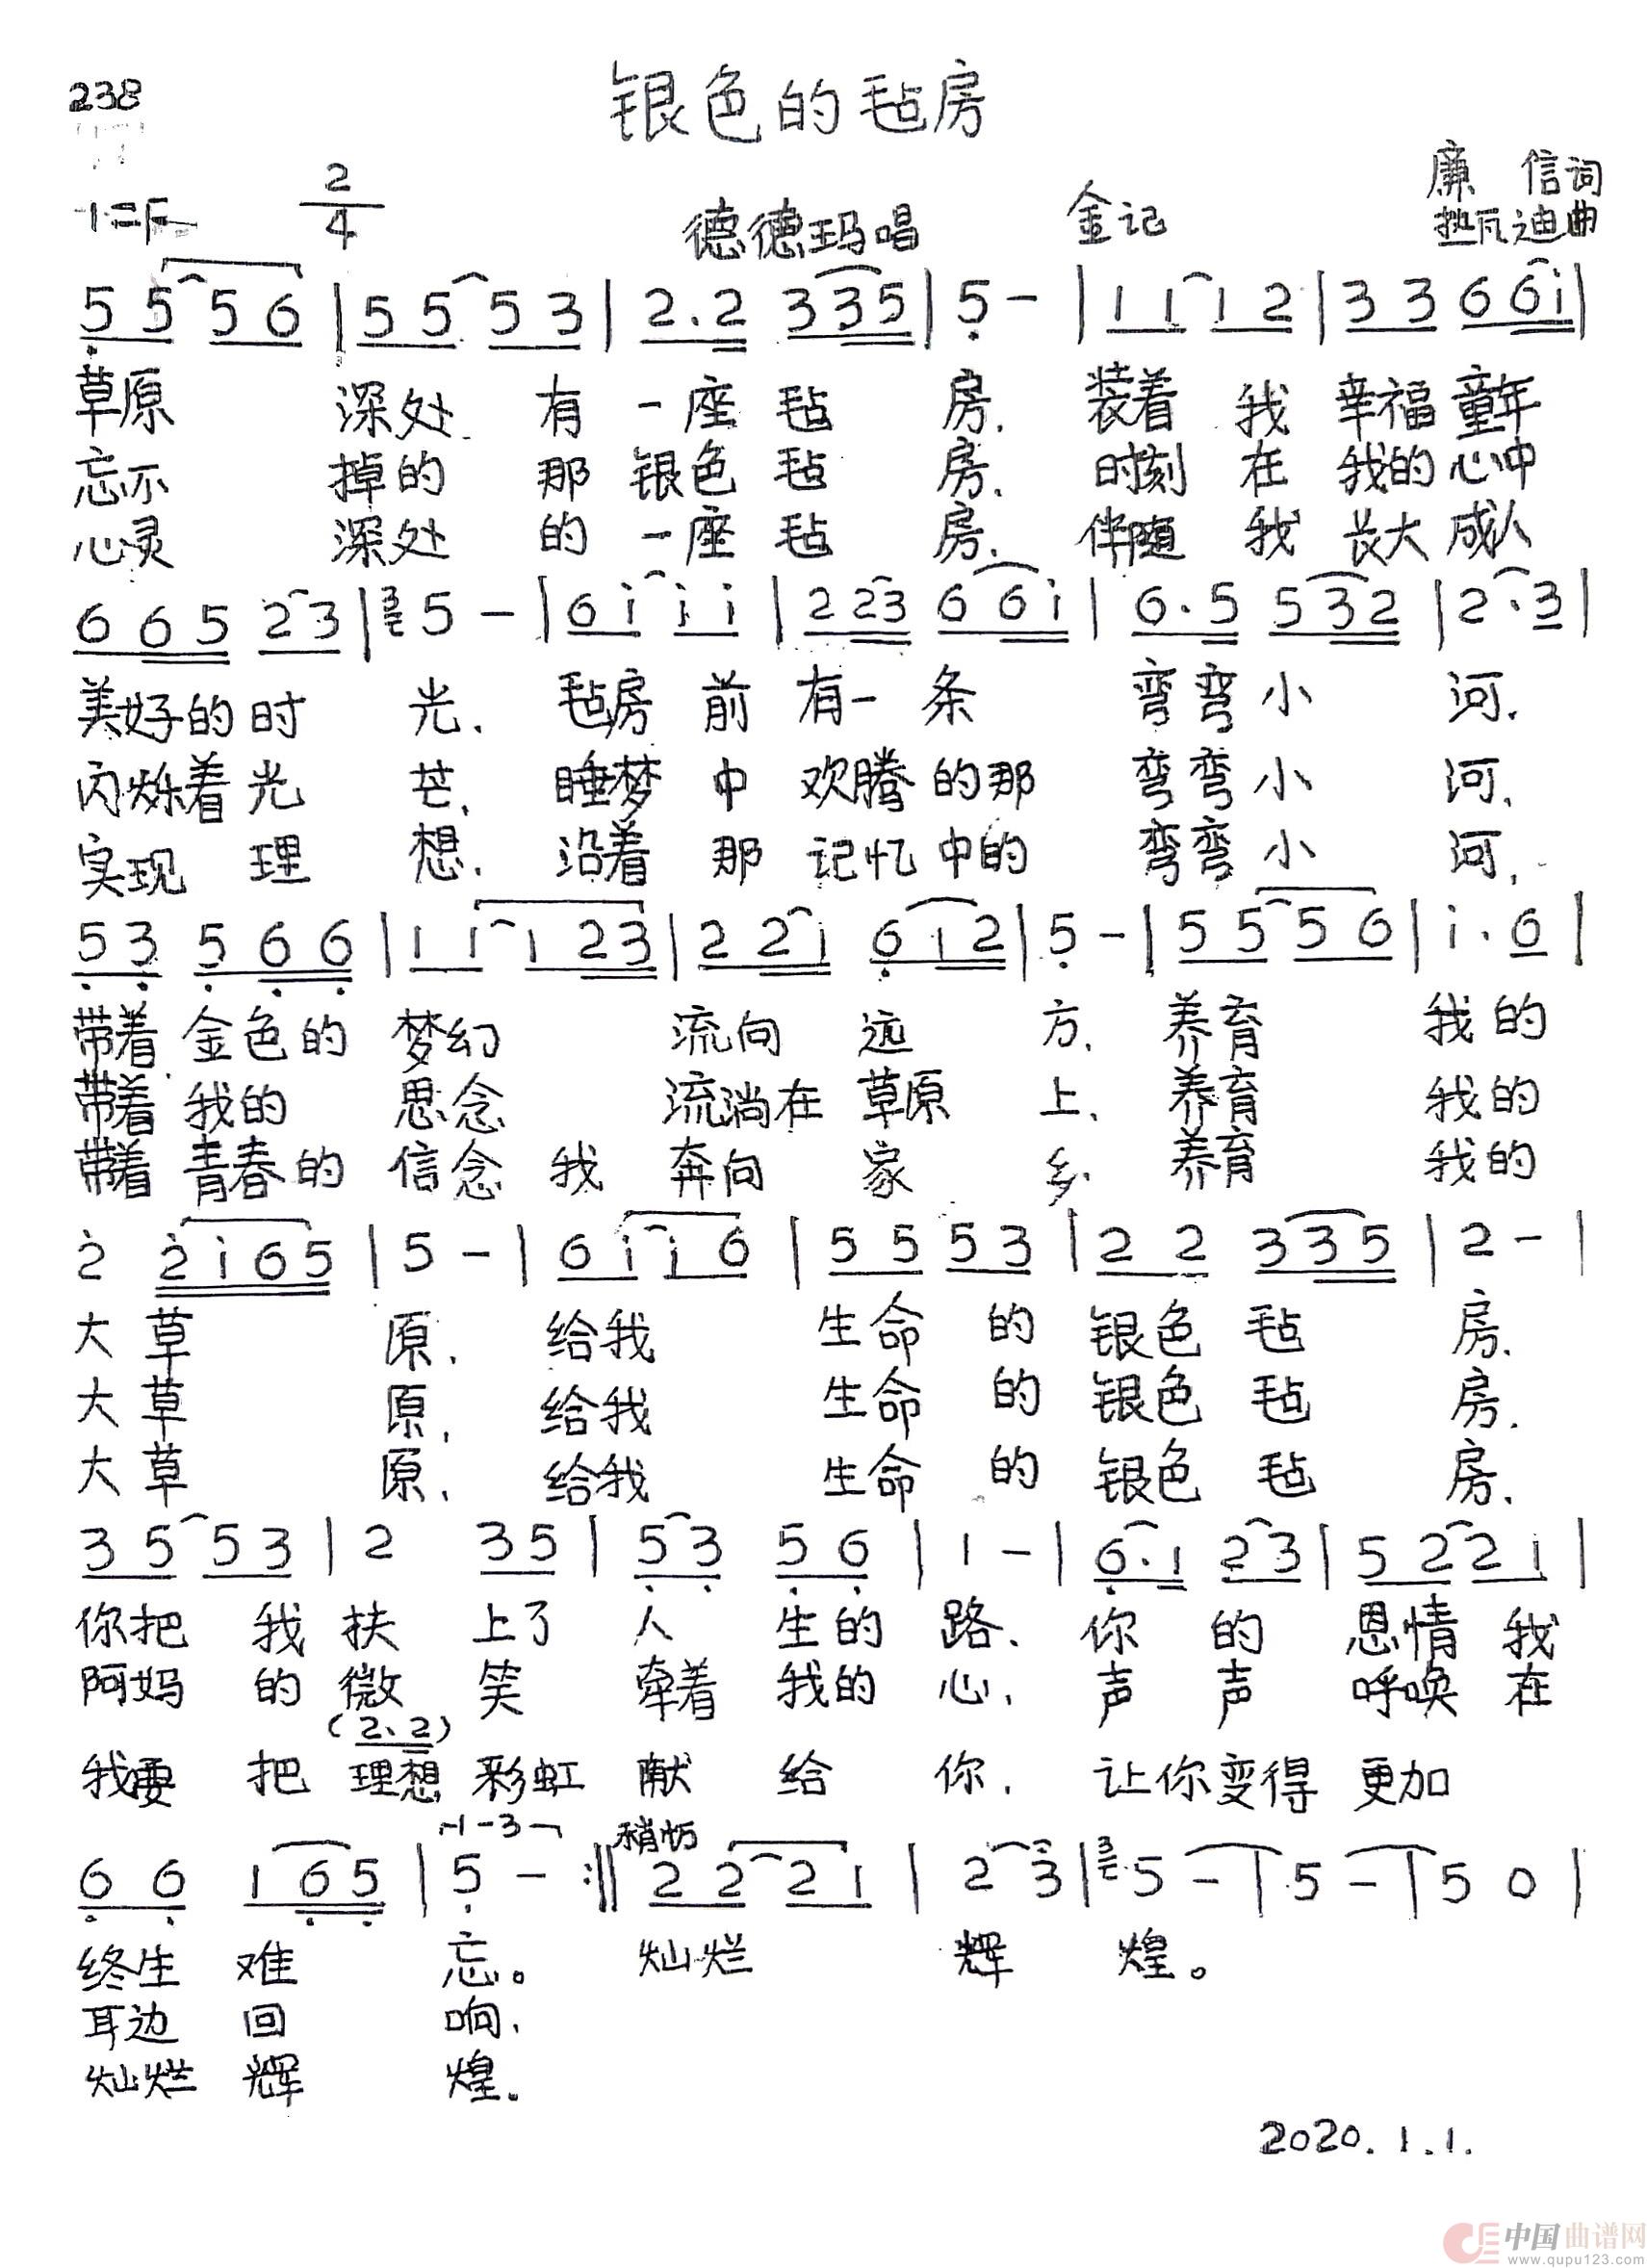 238
银色的毡房
1=F 2/4 德德玛唱 金记 廉 信词
热瓦迪曲
5 5 5 6 | 5 5 5 3 | 2. 2 3 3 5 | 5 - | 1 1 1 2 | 3 3 6 6 i |
草原 深处 有 一座 毡 房. 装着 我 幸福 童年
忘不 掉的 那 银色 毡 房. 时刻 在 我的 心中
心灵 深处 的 一座 毡 房. 伴随 我 长大 成人
6 6 5 2 3 | 3 5 - | 6 i i i | 2 2 3 6 6 i | 6. 5 5 3 2 | 2. 3 |
美好的 时 光. 毡房 前 有一 条 弯弯 小 河.
闪烁着 光 芒, 睡梦 中 欢腾 的那 弯弯 小 河,
实现 理 想. 沿着 那 记忆 中的 弯弯 小 河,
5 3 5 6 6 | 1 1 1 2 3 | 2 2 1 6 1 2 | 5 - | 5 5 5 6 | i. 6 |
带着 金色的 梦幻 流向 远 方. 养育 我的
带着 我的 思念 流淌在 草原 上, 养育 我的
带着 青春的 信念 我 奔向 家 乡. 养育 我的
2 2 i 6 5 | 5 - | 6 i i 6 | 5 5 5 3 | 2 2 3 3 5 | 2 - |
大 草 原. 给我 生命 的 银色 毡 房.
大 草 原, 给我 生命 的 银色 毡 房.
大 草 原. 给我 生命 的 银色 毡 房.
3 5 5 3 | 2 3 5 | 5 3 5 6 | 1 - | 6. 1 2 3 | 5 2 2 1 |
你把 我 扶 上了 人 生的 路. 你 的 恩情 我
阿妈 的 微 笑 牵着 我的 心. 声 声 呼唤 在
(2. 2)
我要 把 理想 彩虹 献 给 你. 让你变得 更加
1-3 稍忙
6 6 1 6 5 | 5 - :|| 2 2 2 1 | 2 3 | 3 5 - | 5 - | 5 0 |
终生 难 忘。 灿烂 辉 煌。
耳边 回 响.
灿烂 辉 煌.
2020.1.1.
中国曲谱网
www.qupu123.com